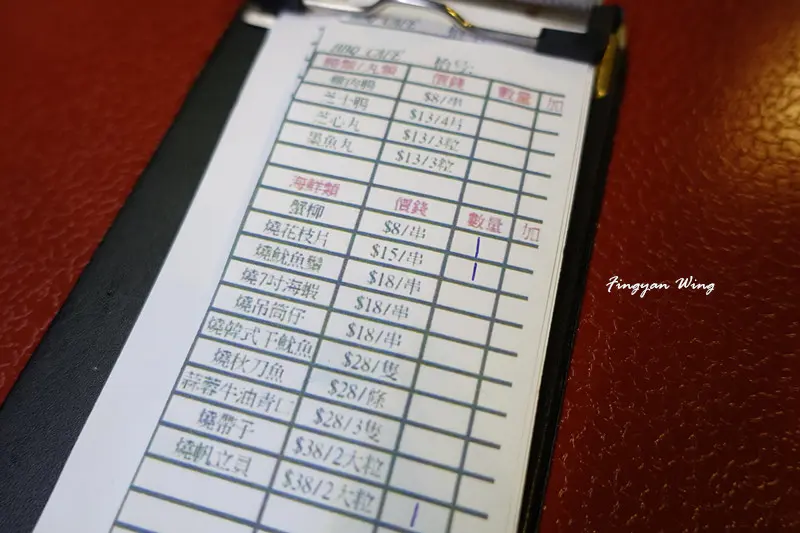 BBQ CAFE 枱號:
腸類/丸類 價錢 數量 加
雞肉腸 $8/串
芝士腸 $13/4片
芝心丸 $13/3粒
墨魚丸 $13/3粒
海鮮類 價錢 數量 加
蟹柳 $8/串 |
燒花枝片 $15/串 |
燒魷魚鬚 $18/串
燒7吋海蝦 $18/串
燒吊筒仔 $18/串
燒韓式下魷魚 $28/隻
燒秋刀魚 $28/條
蒜蓉牛油青口 $28/3隻
燒帶子 $38/2大粒
燒帆立貝 $38/2大粒 |
Fingyan Wing